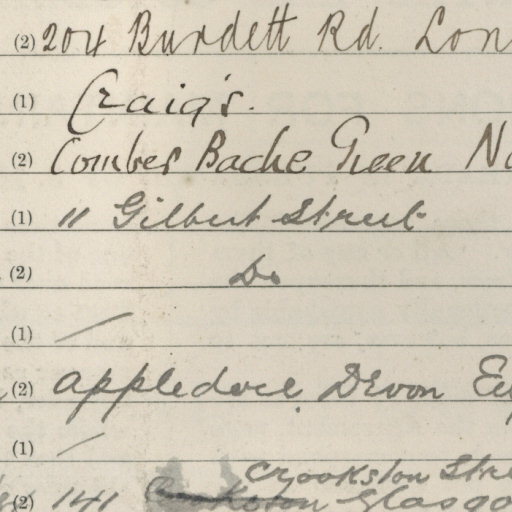 (2) 204 Burdett Rd. Lon
(1) Craig's.
(2) Comber Bache Green
(1) 11 Gilbert Street
(2) Do
(1) /
(2) Appledore. Devon
(1) /
Crookston Stre
(2) 141 Glasgo